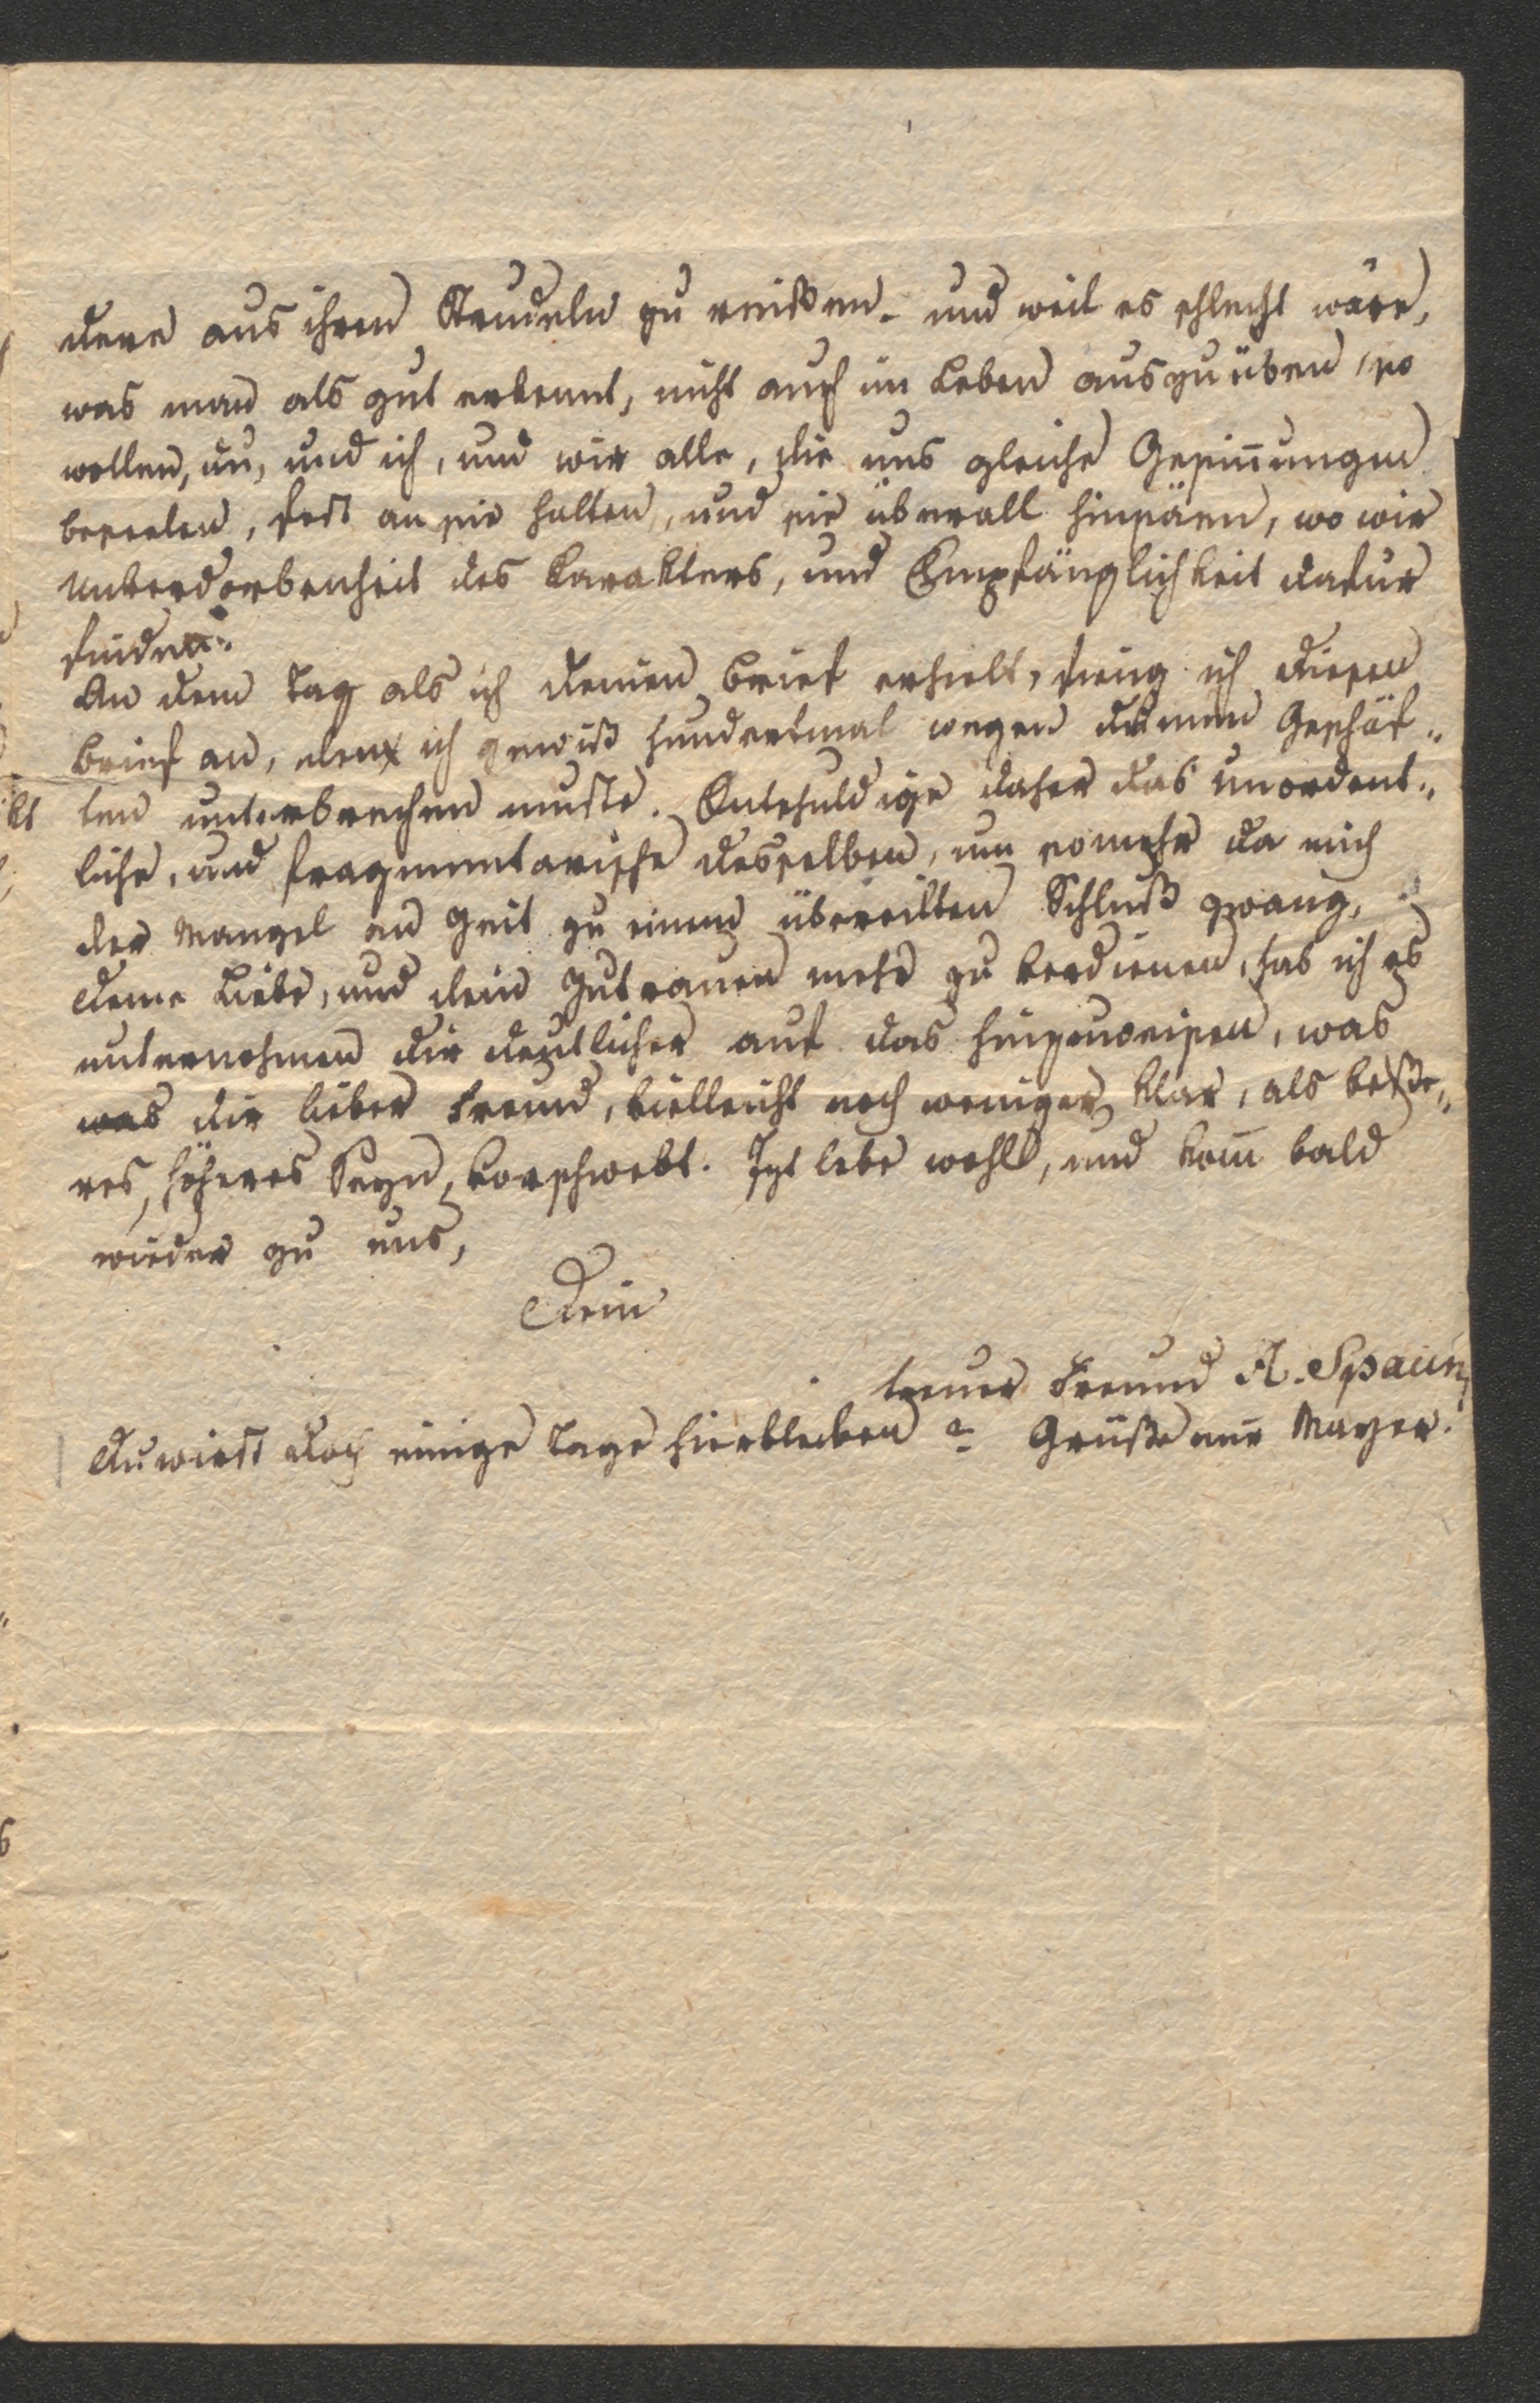 dere aus ihren Strudeln zu reißen. und weil es schlecht wäre,
was man als gut erkennt, nicht auch im Leben auszuüben, so
wollen, du, und ich, und wir alle, die uns gleiche Gesin̄ungen
beseelen, fest an sie halten, und sie überall hinsäen, wo wir
Unverdorbenheit des Karakters, und Empfänglichkeit dafür
finden.
An dem Tag als ich deinen Brief erhielt, fieng ich diesen
Brief an, den ich gewiß hundertmal wegen dummen Geschäf„
ten unterbrechen mußte. Entschuldige daher das unordent„
liche, und fragmentarische desselben, um somehr da mich
der Mangel an Zeit zu einem übereilten Schluß zwang,
deine Liebe, und dein Zutrauen mehr zu verdienen, hab ich es
unternohmen dir deutlicher auf das hinzuweisen, was
was dir lieber Freund, vielleicht noch weniger klar, als beße„
res, höheres Seyn, vorschwebt. Izt lebe wohl, und kom̄ bald
wieder zu uns,
Dein
treuer Freund A. Spaun
Du wirst doch einige Tage hierbleiben? Grüße mir Mayer.